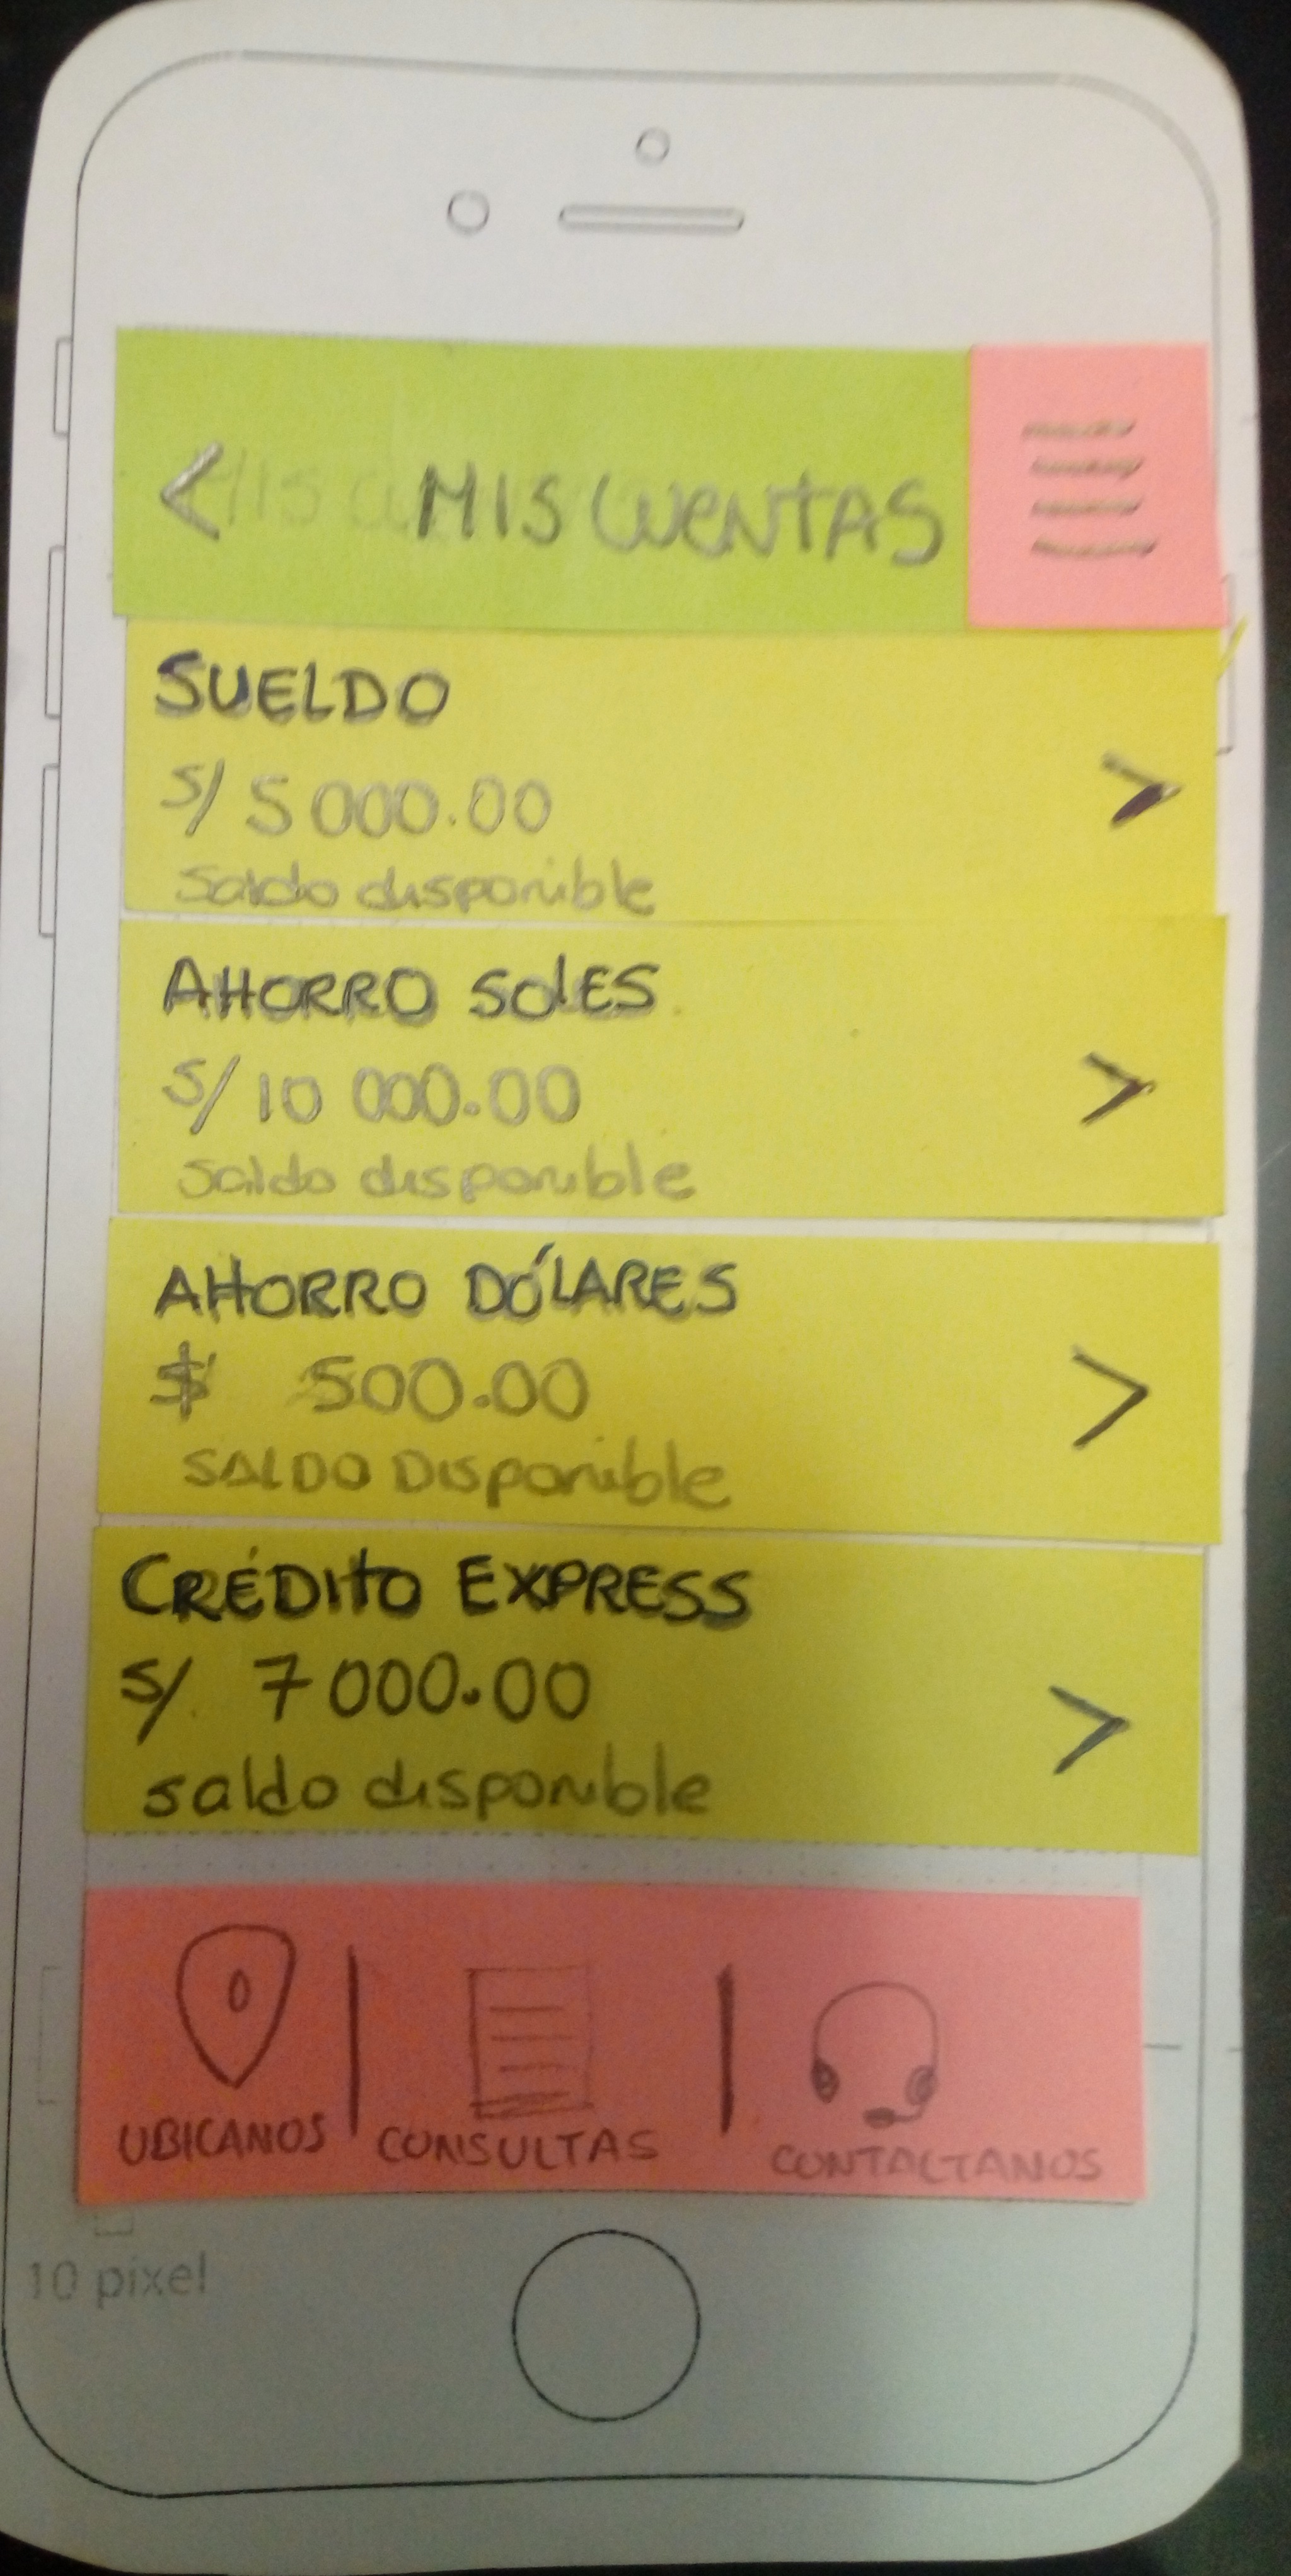 < MIS CUENTAS
SUELDO
S/ 5 000.00 >
Saldo disponible
AHORRO SOLES
S/ 10 000.00 >
Saldo disponible
AHORRO DÓLARES
$ 500.00 >
SALDO DISponible
CRÉDITO EXPRESS
S/. 7 000.00 >
saldo disponible
UBICANOS | CONSULTAS | CONTACTANOS
10 pixel